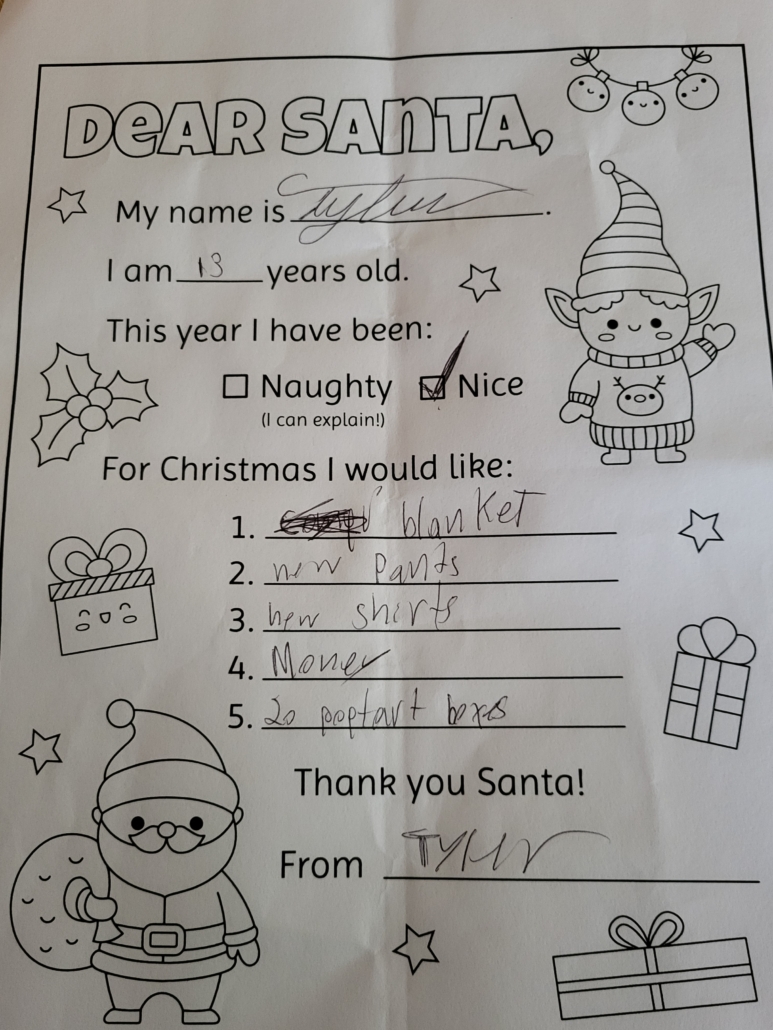 DeAR SAnTA,
My name is Tyler.
I am 13 years old.
This year I have been:
Naughty Nice
(I can explain!)
For Christmas I would like:
1. blanket
2. new pants
3. new shirts
4. Money
5. 20 poptart boxes
Thank you Santa!
From Tyler